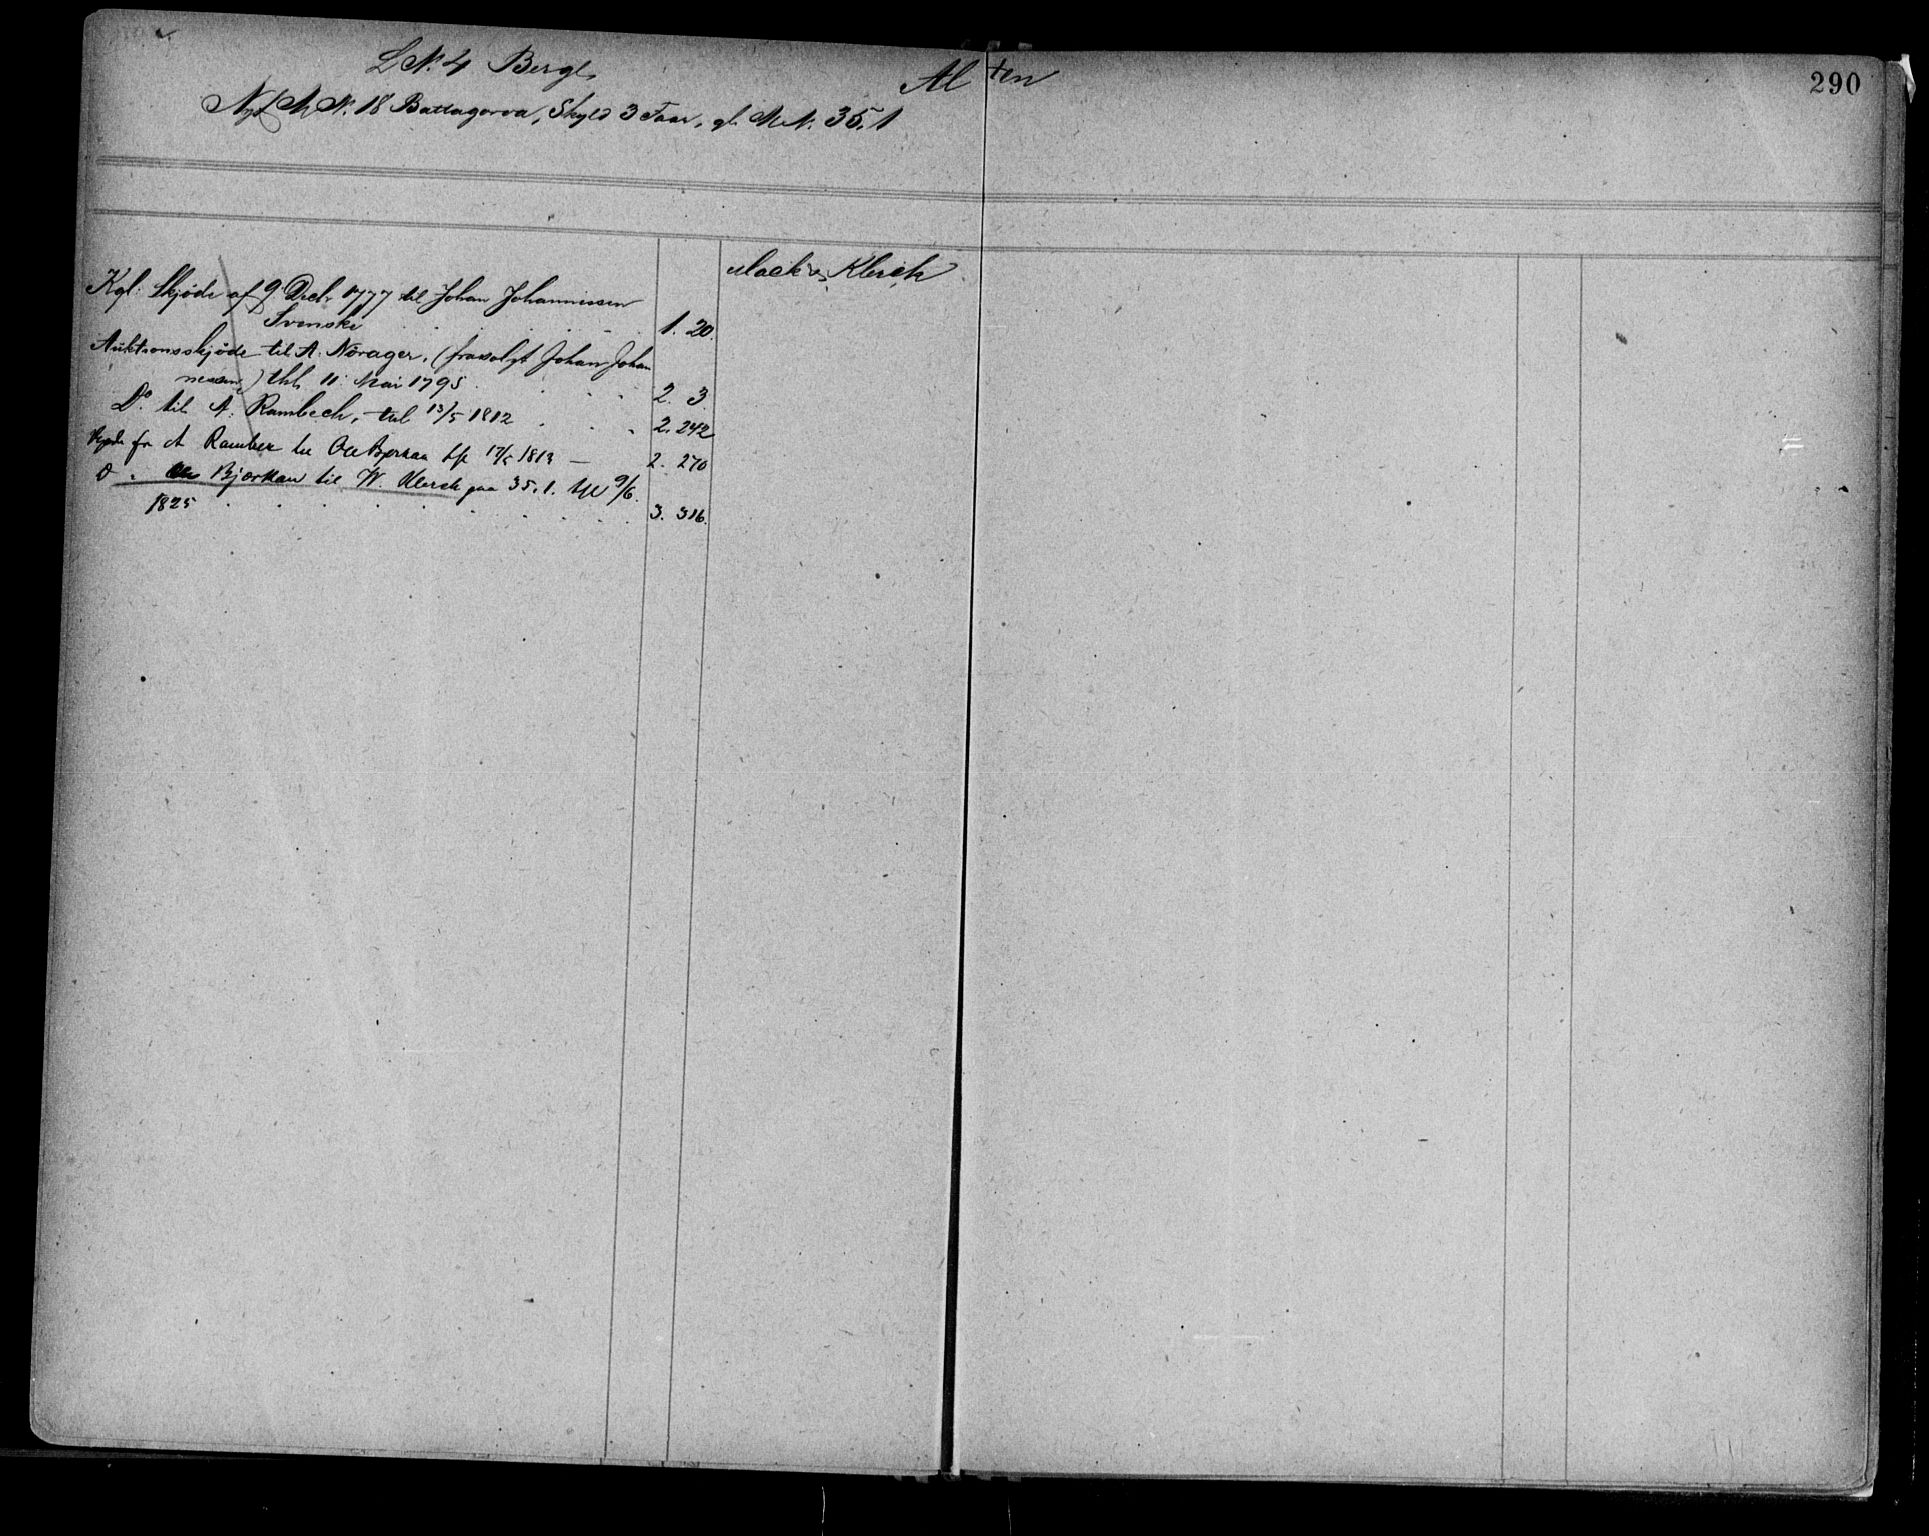 290
L N: 4 Bergl.
Al ten
Nyt M. N: 18 Battagorva, Skyld 3 Faar, gl. M. N: 35.1
Mack & Klerck
Kgl: Skjøde af 9 Decbr 1777 til Johan Johannissen
Svenske 1. 20.
Auktionsskjøde til A. Norager, (frasolgt Johan Johan
nessen) thl. 11 Mai 1795 2. 3.
Do. til A. Rambech, thl 13/5 1812 2. 242
Skjøde fr A Rambec til Ole Bjorkaa 17/5 1813 — 2. 270
D " Ole Bjorkaa til W. Klerck paa 35.1. thl 9/6.
1825 3. 316.